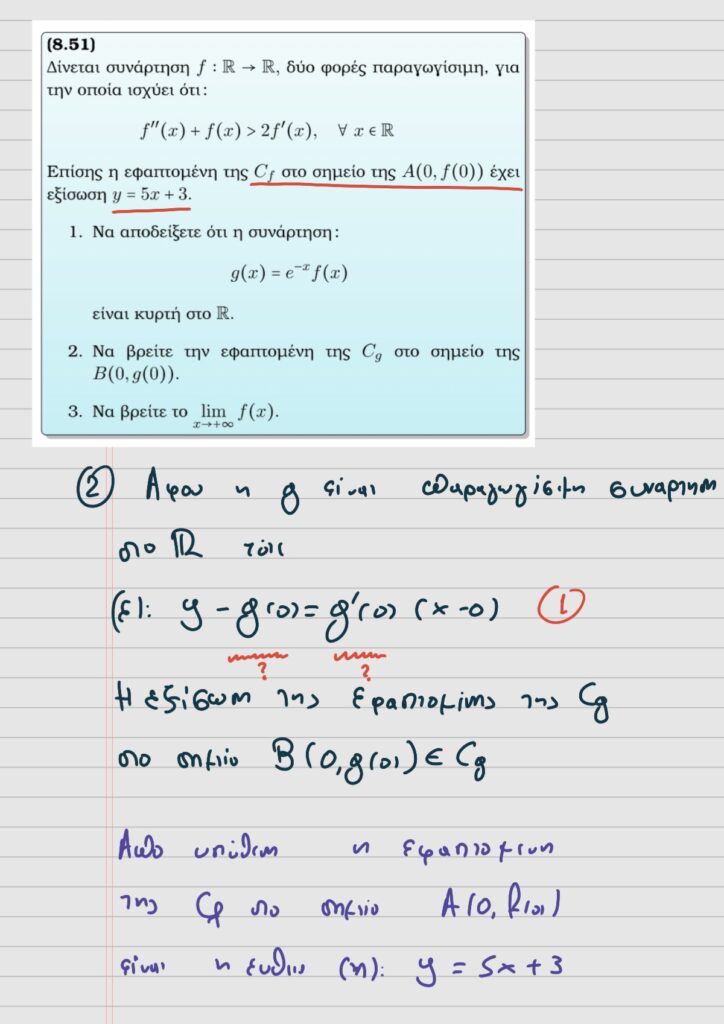 (8.51)
Δίνεται συνάρτηση f : ℝ → ℝ, δύο φορές παραγωγίσιμη, για
την οποία ισχύει ότι:
f''(x) + f(x) > 2f'(x), ∀ x ∈ ℝ
Επίσης η εφαπτομένη της C_f στο σημείο της A(0, f(0)) έχει
εξίσωση y = 5x + 3.
1. Να αποδείξετε ότι η συνάρτηση:
g(x) = e^{-x} f(x)
είναι κυρτή στο ℝ.
2. Να βρείτε την εφαπτομένη της C_g στο σημείο της
B(0, g(0)).
3. Να βρείτε το lim_{x→+∞} f(x).
② Αφου η g είναι παραγωγίσιμη συναρτηση
στο ℝ τότε
(ε): y - g(0) = g'(0) (x - 0) ①
? ?
Η εξίσωση της εφαπτομένης της Cg
στο σημείο B(0, g(0)) ∈ Cg
Από υπόθεση η εφαπτομενη
της Cf στο σημείο A(0, f(0))
είναι η ευθεια (η): y = 5x + 3